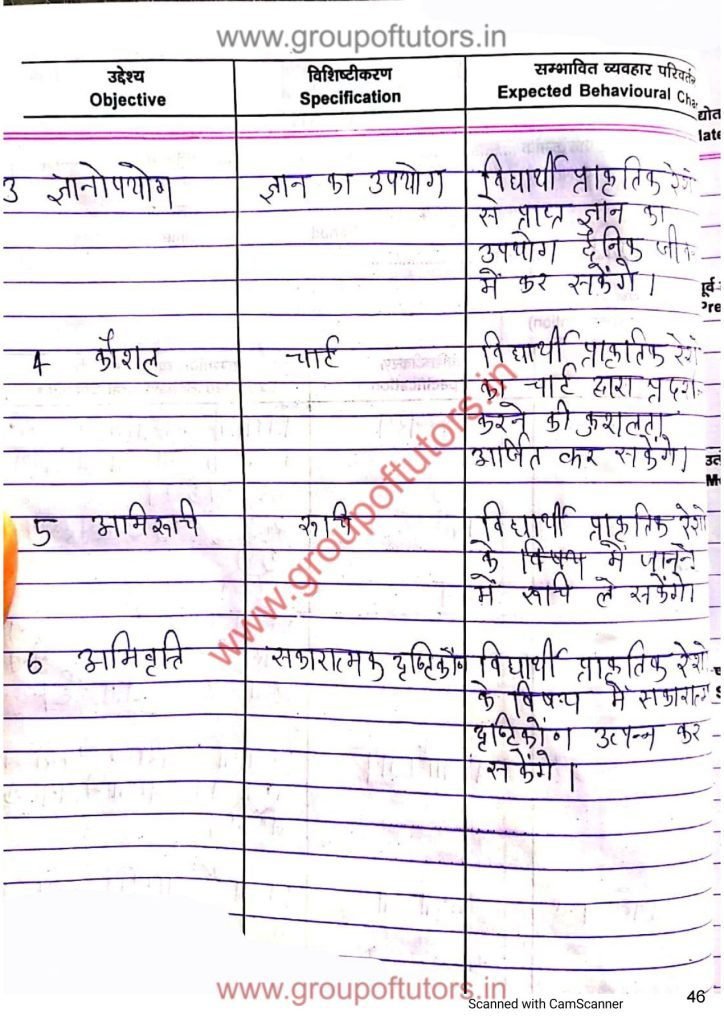 www.groupoftutors.in
उद्देश्य
Objective
विशिष्टीकरण
Specification
सम्भावित व्यवहार परिवर्तन
Expected Behavioural Cha
3 ज्ञानोपयोग
ज्ञान का उपयोग
विद्यार्थी प्राकृतिक रेशे
से प्राप्त ज्ञान का
उपयोग दैनिक जीव
में कर सकेंगे।
4 कौशल
चार्ट
विद्यार्थी प्राकृतिक रेशे
का चार्ट द्वारा प्रदर्श
करने की कुशलता
अर्जित कर सकेंगे।
5 अभिरूचि
रूचि
विद्यार्थी प्राकृतिक रेशो
के विषय में जानने
में रूचि ले सकेंगे।
6 अभिवृत्ति
सकारात्मक दृष्टिकोण
विद्यार्थी प्राकृतिक रेशो
के विषय में सकारात्म
दृष्टिकोण उत्पन्न कर
सकेंगे।
www.groupoftutors.in
www.groupoftutors.in
Scanned with CamScanner
46